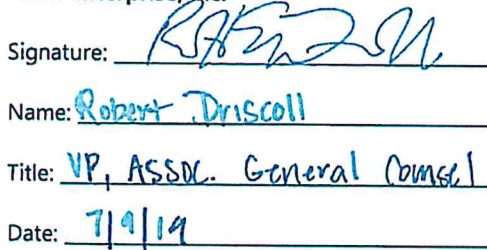 Signature:
Name: Robert Driscoll
Title: VP, Assoc. General Counsel
Date: 7/9/19